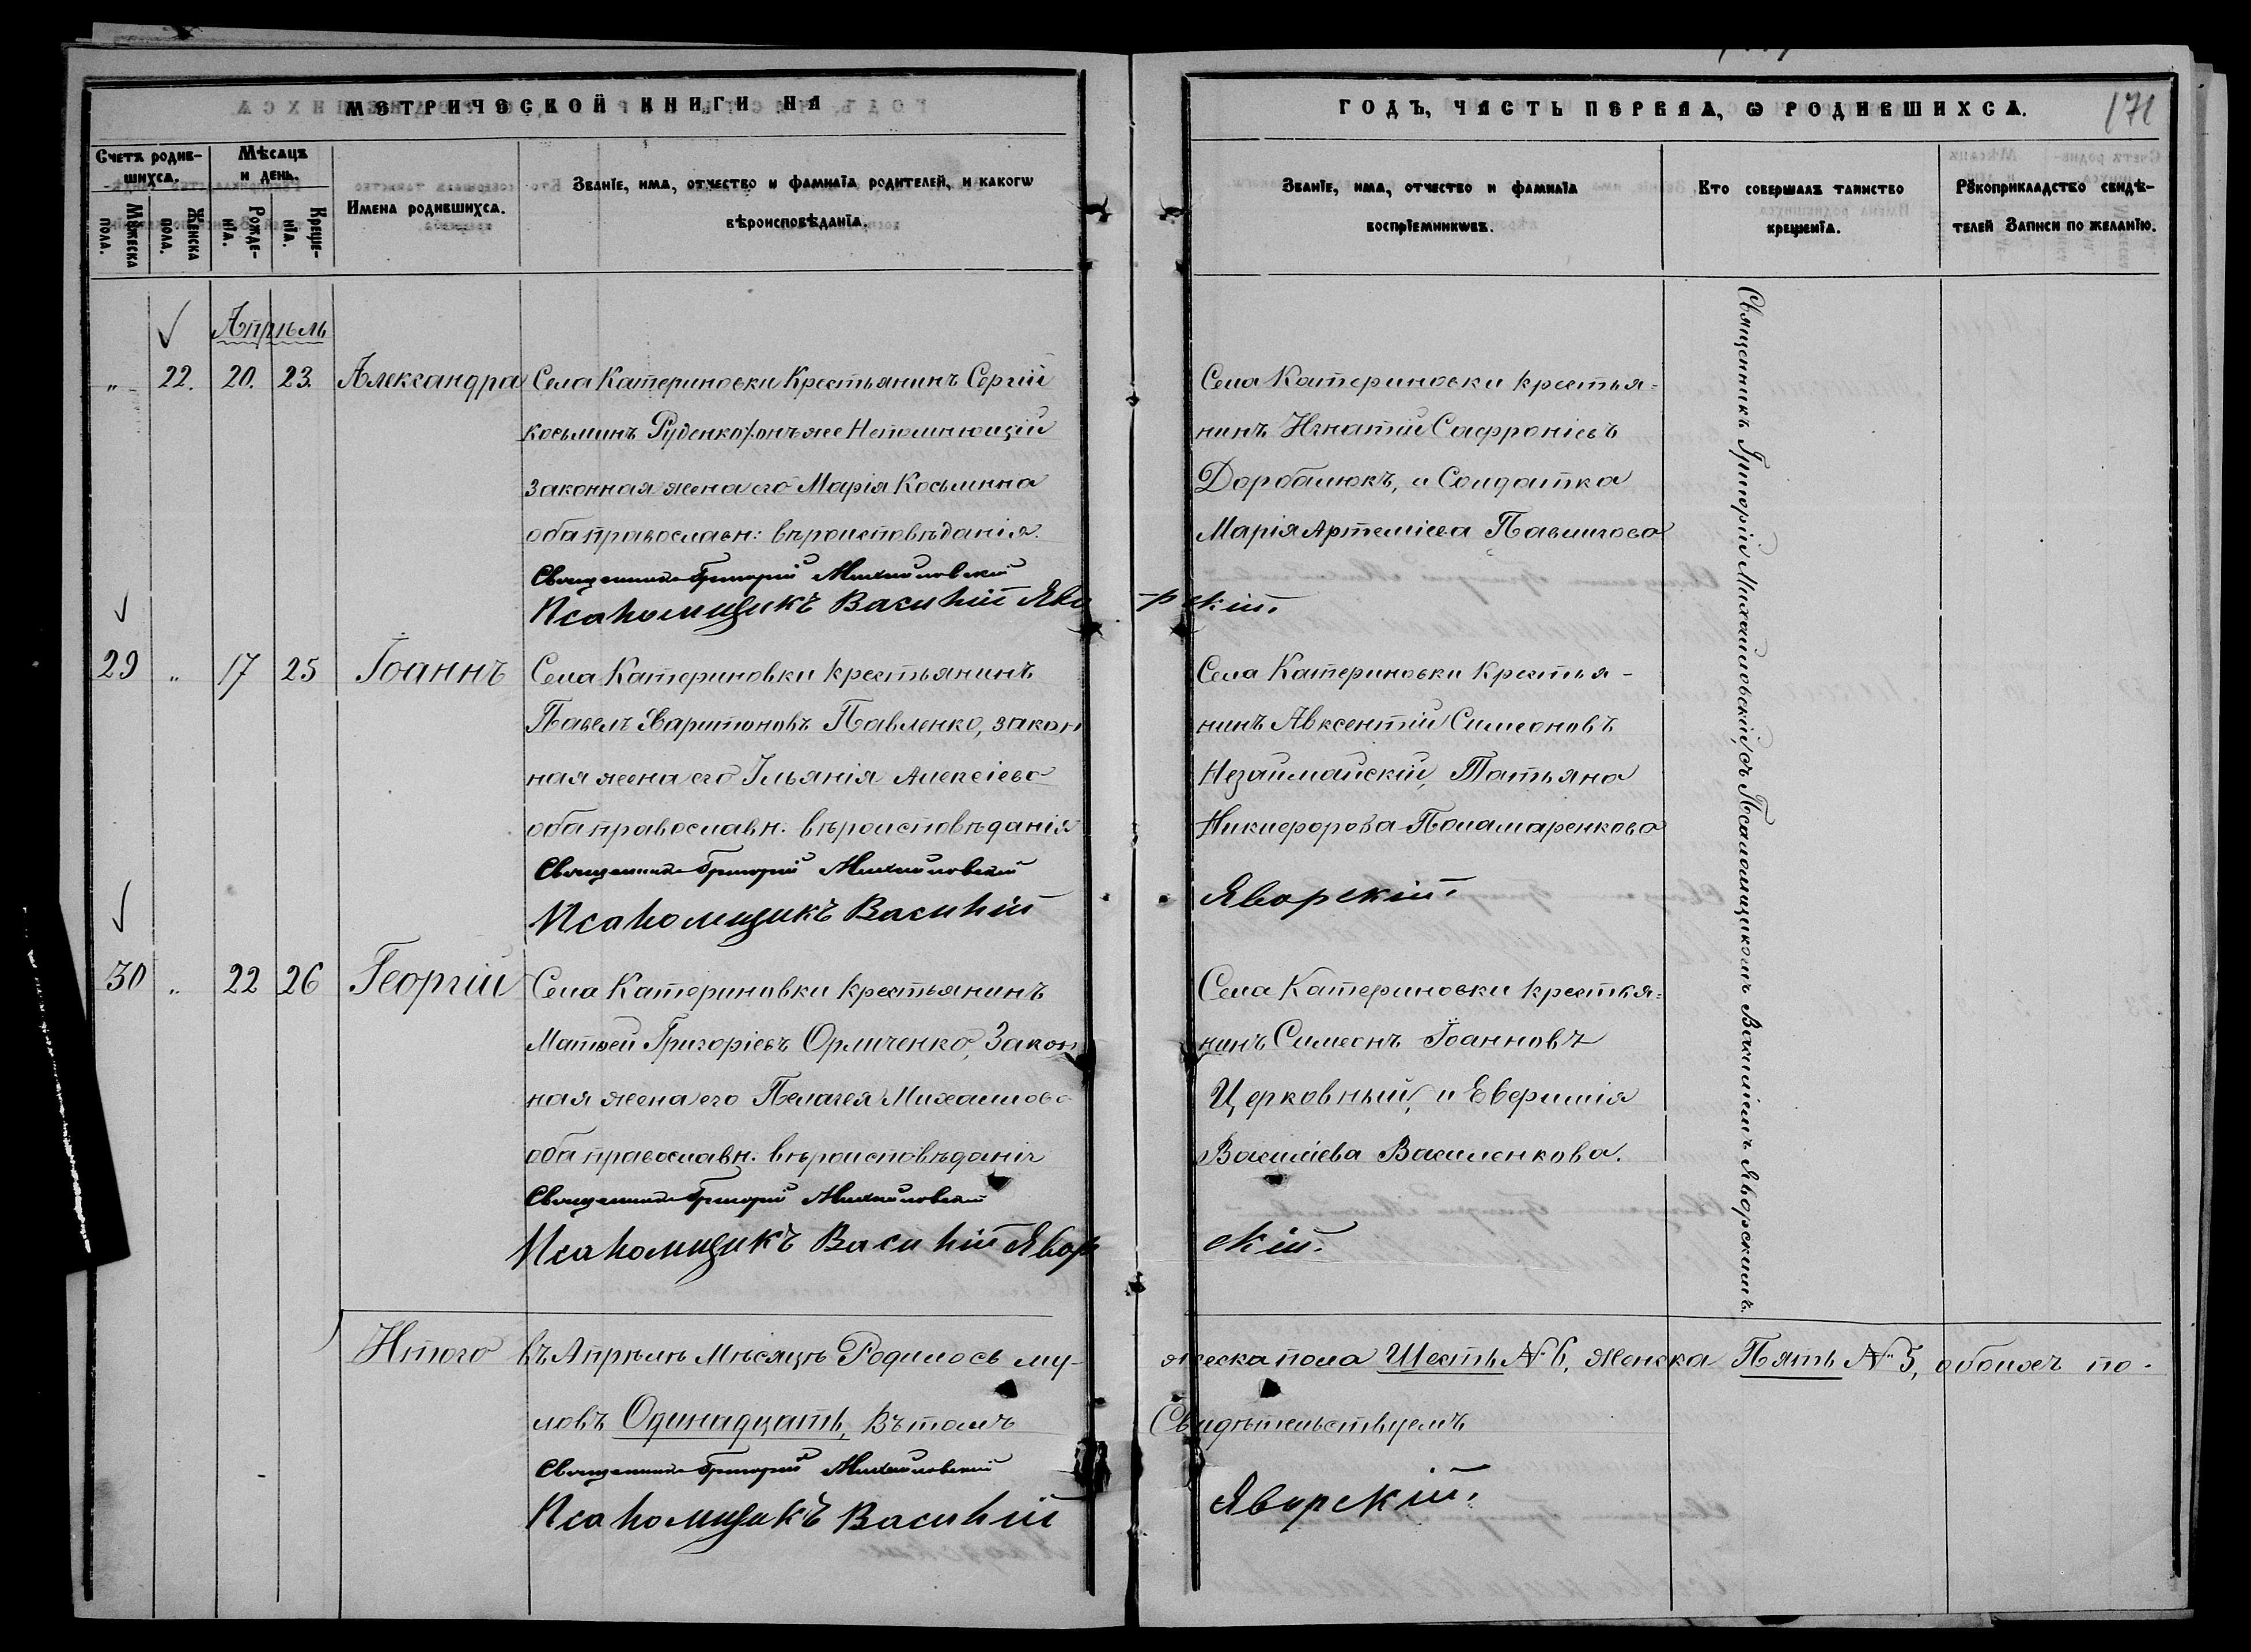 МЕТРИЧЕСКОЙ КНИГИ НА
ГОДЪ, ЧАСТЬ ПЕРВАЯ, Ѡ РОДИВШИХСѦ.
171
Счетъ родив-
шихсѧ.
Мѣсѧцъ
и день.
Мꙋжеска
пола.
Женска
пола.
Рожде-
нїѧ.
Креще-
нїѧ.
Имена родившихсѧ.
Званїе, имѧ, отчество и фамилїѧ родителей, и какогѡ
вѣроисповѣданїѧ.
Званїе, имѧ, отчество и фамилїѧ
воспрїемникѡвъ.
Кто совершалъ таинство
крещенїѧ.
Рꙋкоприкладство свидѣ-
телей записи по желанїю.
Апрѣль
„ 22. 20. 23. Александра
Села Катериновки Крестьянинъ Сергій
Косьминъ Руденко /: онъ же Непомнющій
законная жена его Марія Косьмина
оба православн: вѣроисповѣданія.
Священникъ Григорій Михайловскій
Псаломщикъ Василій Яво-рскій.
Села Катериновки крестья=
нинъ Игнатій Сафроніевъ
Доробалюкъ, и Солдатка
Марія Артеміева Павлигова
29 „ 17 25 Іоаннъ
Села Катериновки крестьянинъ
Павелъ Харитоновъ Павленко, закон
ная жена его Ільянія Алексіева
оба православн. вѣроисповѣданія
Священникъ Григорій Михайловскій
Псаломщикъ Василій Яворскій.
Села Катериновки Крестья-
нинъ Авксентій Симеоновъ
Незаймайскій, Татьяна
Никифорова Поламаренкова
30 „ 22 26 Георгій
Села Катериновки крестьянинъ
Матвей Григоріевъ Орличенко, Закон
ная жена его Пелагея Михаилова
оба православн. вѣроисповѣданія
Священникъ Григорій Михайловскій
Псаломщикъ Василій Яворскій.
Села Катериновки крестья=
нинъ Симеонъ Іоанновъ
Церковный, и Евфимія
Василіева Василенкова.
Священникъ Григорій Михайловскій съ Псаломщикомъ Василіемъ Яворскимъ.
Итого въ Апрѣлѣ Мѣсяцѣ Родилось му-жеска пола Шесть № 6, женска Пять № 5, обоихъ по-
ловъ Одинадцать, Въ томъ Свидѣтельствуемъ
Священникъ Григорій Михайловскій
Псаломщикъ Василій Яворскій.